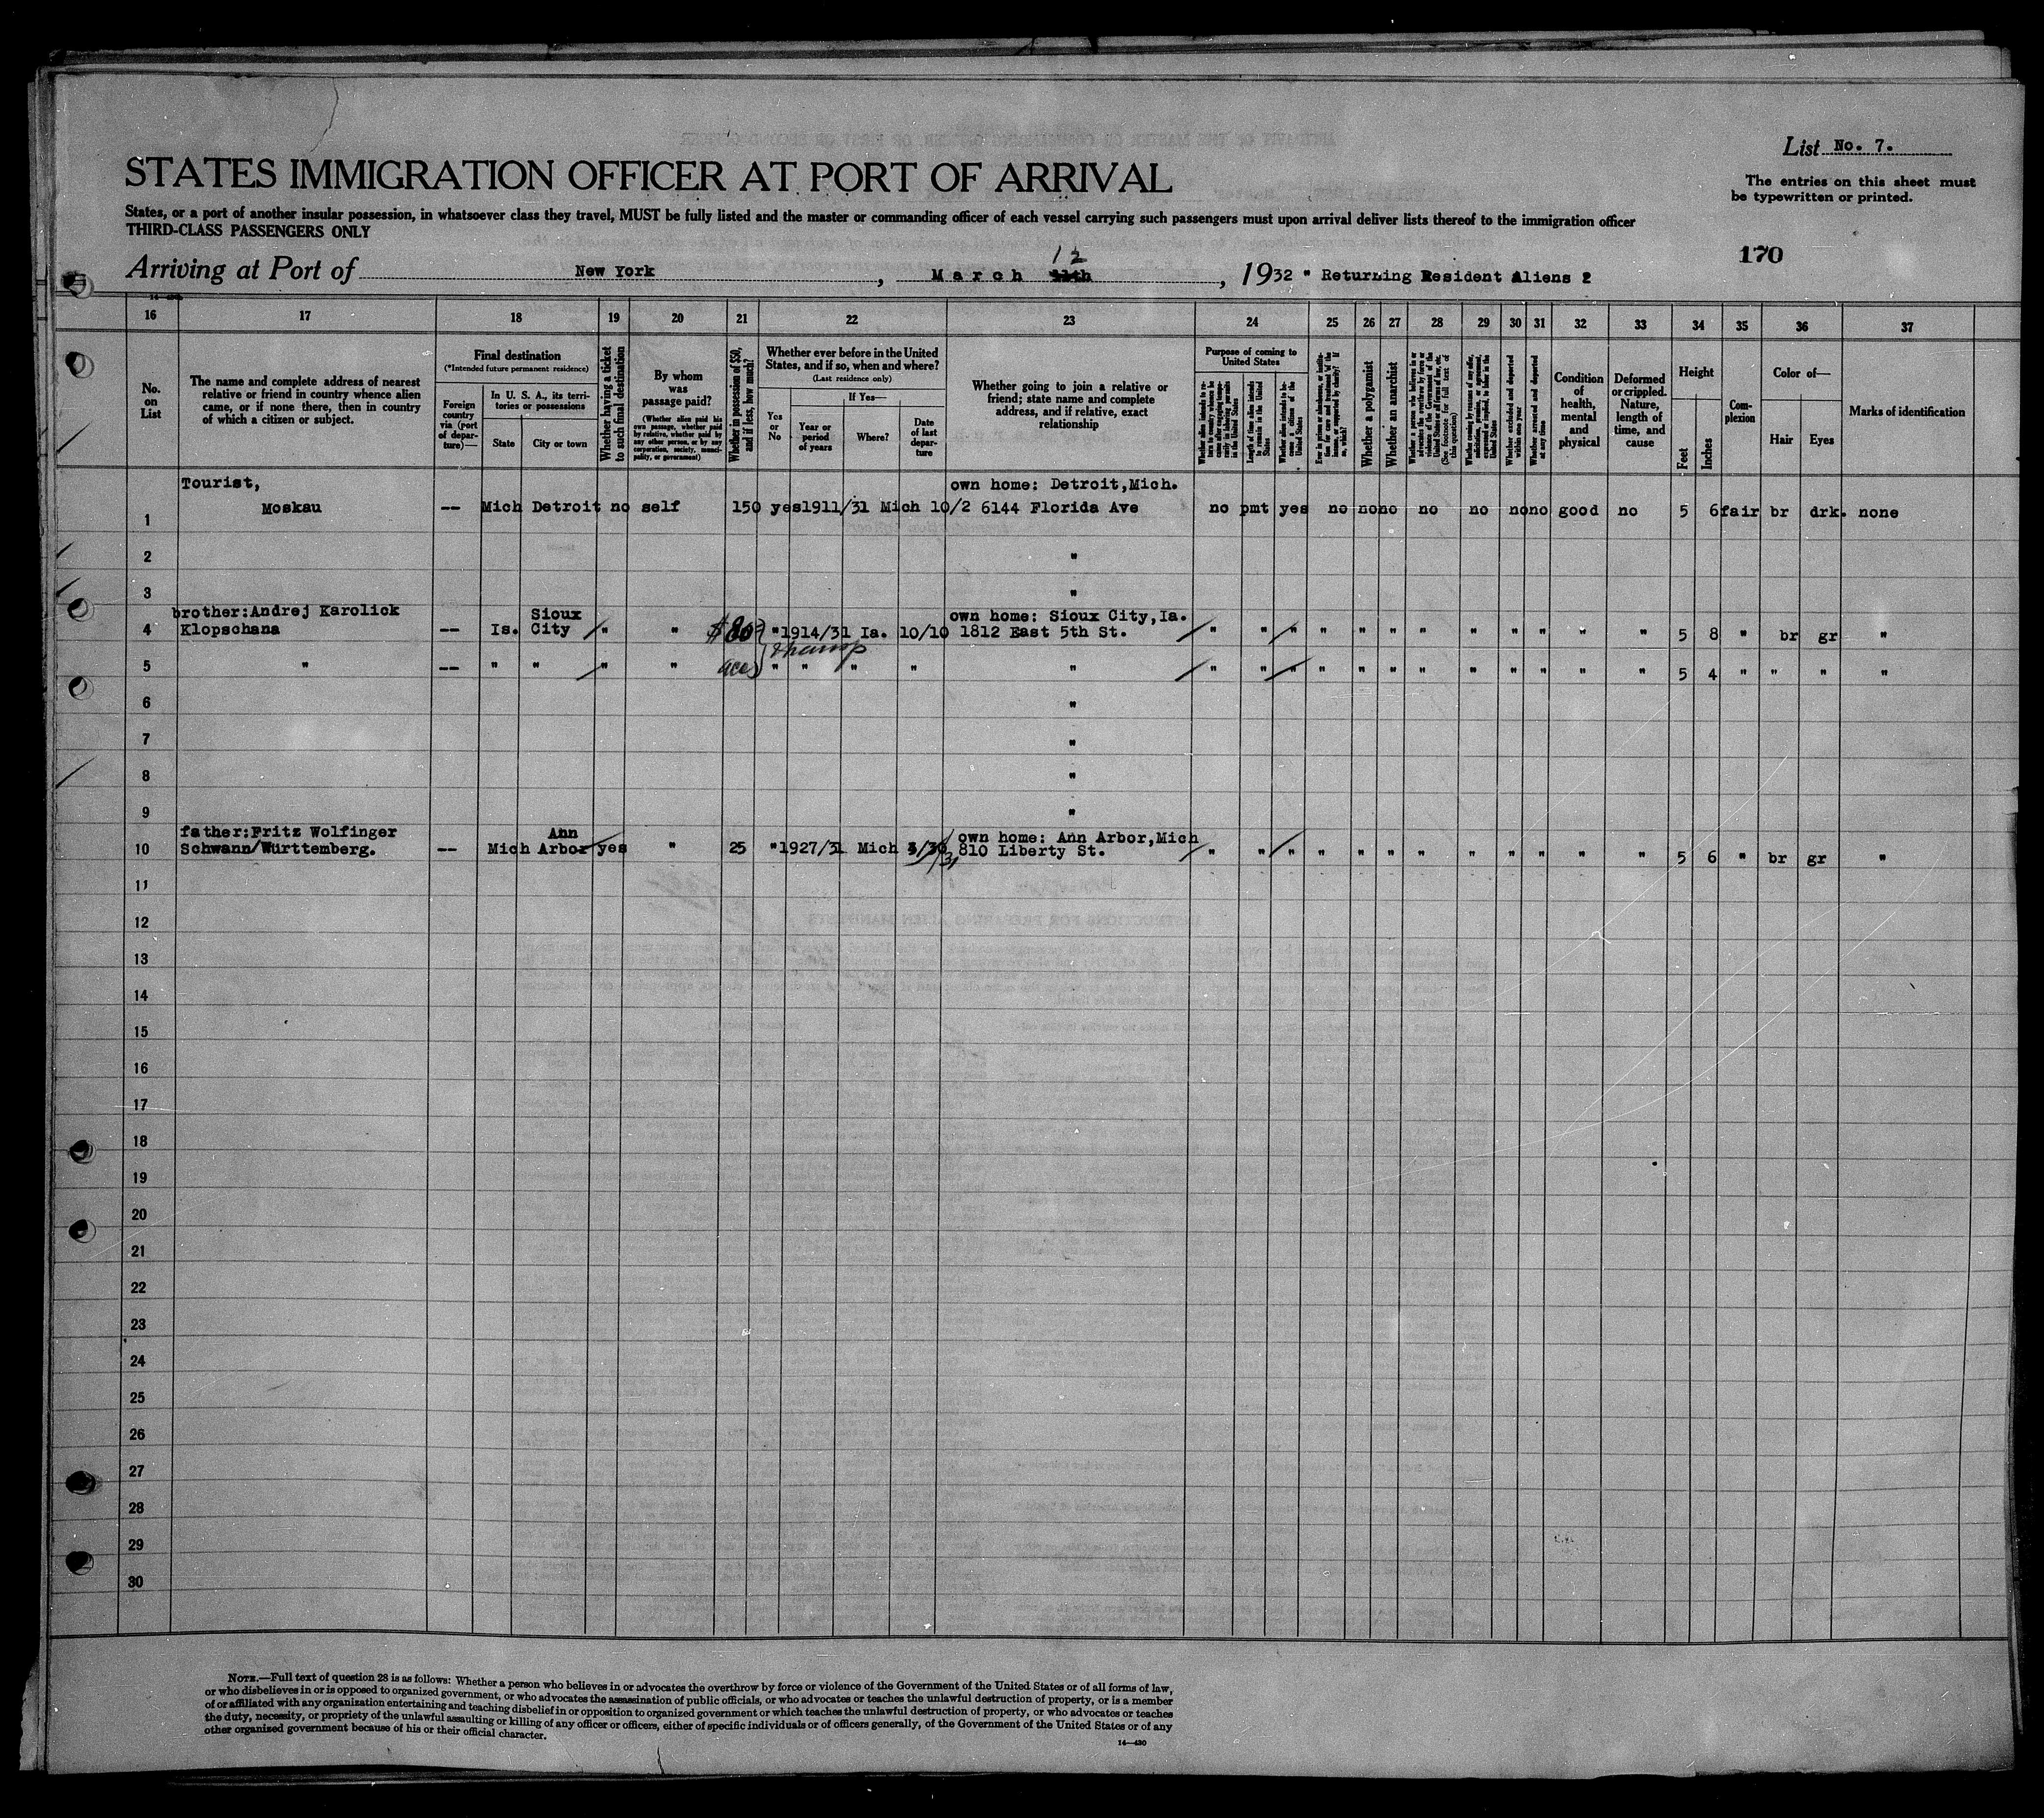 List No. 7.
STATES IMMIGRATION OFFICER AT PORT OF ARRIVAL
The entries on this sheet must
be typewritten or printed.
States, or a port of another insular possession, in whatsoever class they travel, MUST be fully listed and the master or commanding officer of each vessel carrying such passengers must upon arrival deliver lists thereof to the immigration officer
THIRD-CLASS PASSENGERS ONLY
170
12
Arriving at Port of New York, March 11th, 1932 " Returning Resident Aliens 2
14—430
16 17 18 19 20 21 22 23 24 25 26 27 28 29 30 31 32 33 34 35 36 37
No. on List
The name and complete address of nearest relative or friend in country whence alien came, or if none there, then in country of which a citizen or subject.
Final destination
(*Intended future permanent residence)
Foreign country via (port of departure)—
In U. S. A., its territories or possessions
State
City or town
Whether having a ticket to such final destination
By whom was passage paid?
(Whether alien paid his own passage, whether paid by relative, whether paid by any other person, or by any corporation, society, municipality, or government)
Whether in possession of $50, and if less, how much?
Whether ever before in the United States, and if so, when and where?
(Last residence only)
Yes or No
If Yes—
Year or period of years
Where?
Date of last departure
Whether going to join a relative or friend; state name and complete address, and if relative, exact relationship
Purpose of coming to United States
Length of time alien intends to remain in the United States
Whether alien intends to become a citizen of the United States
Whether a polygamist
Whether an anarchist
Whether excluded and deported within one year
Whether arrested and deported at any time
Condition of health, mental and physical
Deformed or crippled. Nature, length of time, and cause
Height
Feet
Inches
Complexion
Color of—
Hair
Eyes
Marks of identification
Tourist, own home: Detroit,Mich.
1 Moskau -- Mich Detroit no self 150 yes 1911/31 Mich 10/2 6144 Florida Ave no pmt yes no no no no no no no good no 5 6 fair br drk. none
2 "
3 "
brother:Andrej Karolick Sioux own home: Sioux City,Ia.
4 Klopschana -- Is. City " " $80 " 1914/31 Ia. 10/10 1812 East 5th St. " " " " " " " " " " " " 5 8 " br gr "
5 " -- " " " " " " " " " " " " " " " " " " " " " 5 4 " " " "
6 "
7 "
8 "
9 "
father:Fritz Wolfinger Ann own home: Ann Arbor,Mich
10 Schwann/Württemberg. -- Mich Arbor yes " 25 " 1927/31 Mich 3/30 /31 810 Liberty St. " " " " " " " " " " " " 5 6 " br gr "
11
12
13
14
15
16
17
18
19
20
21
22
23
24
25
26
27
28
29
30
NOTE.—Full text of question 28 is as follows: Whether a person who believes in or advocates the overthrow by force or violence of the Government of the United States or of all forms of law,
or who disbelieves in or is opposed to organized government, or who advocates the assassination of public officials, or who advocates or teaches the unlawful destruction of property, or is a member
of or affiliated with any organization entertaining and teaching disbelief in or opposition to organized government or which teaches the unlawful destruction of property, or who advocates or teaches
the duty, necessity, or propriety of the unlawful assaulting or killing of any officer or officers, either of specific individuals or of officers generally, of the Government of the United States or of any
other organized government because of his or their official character.
14—430